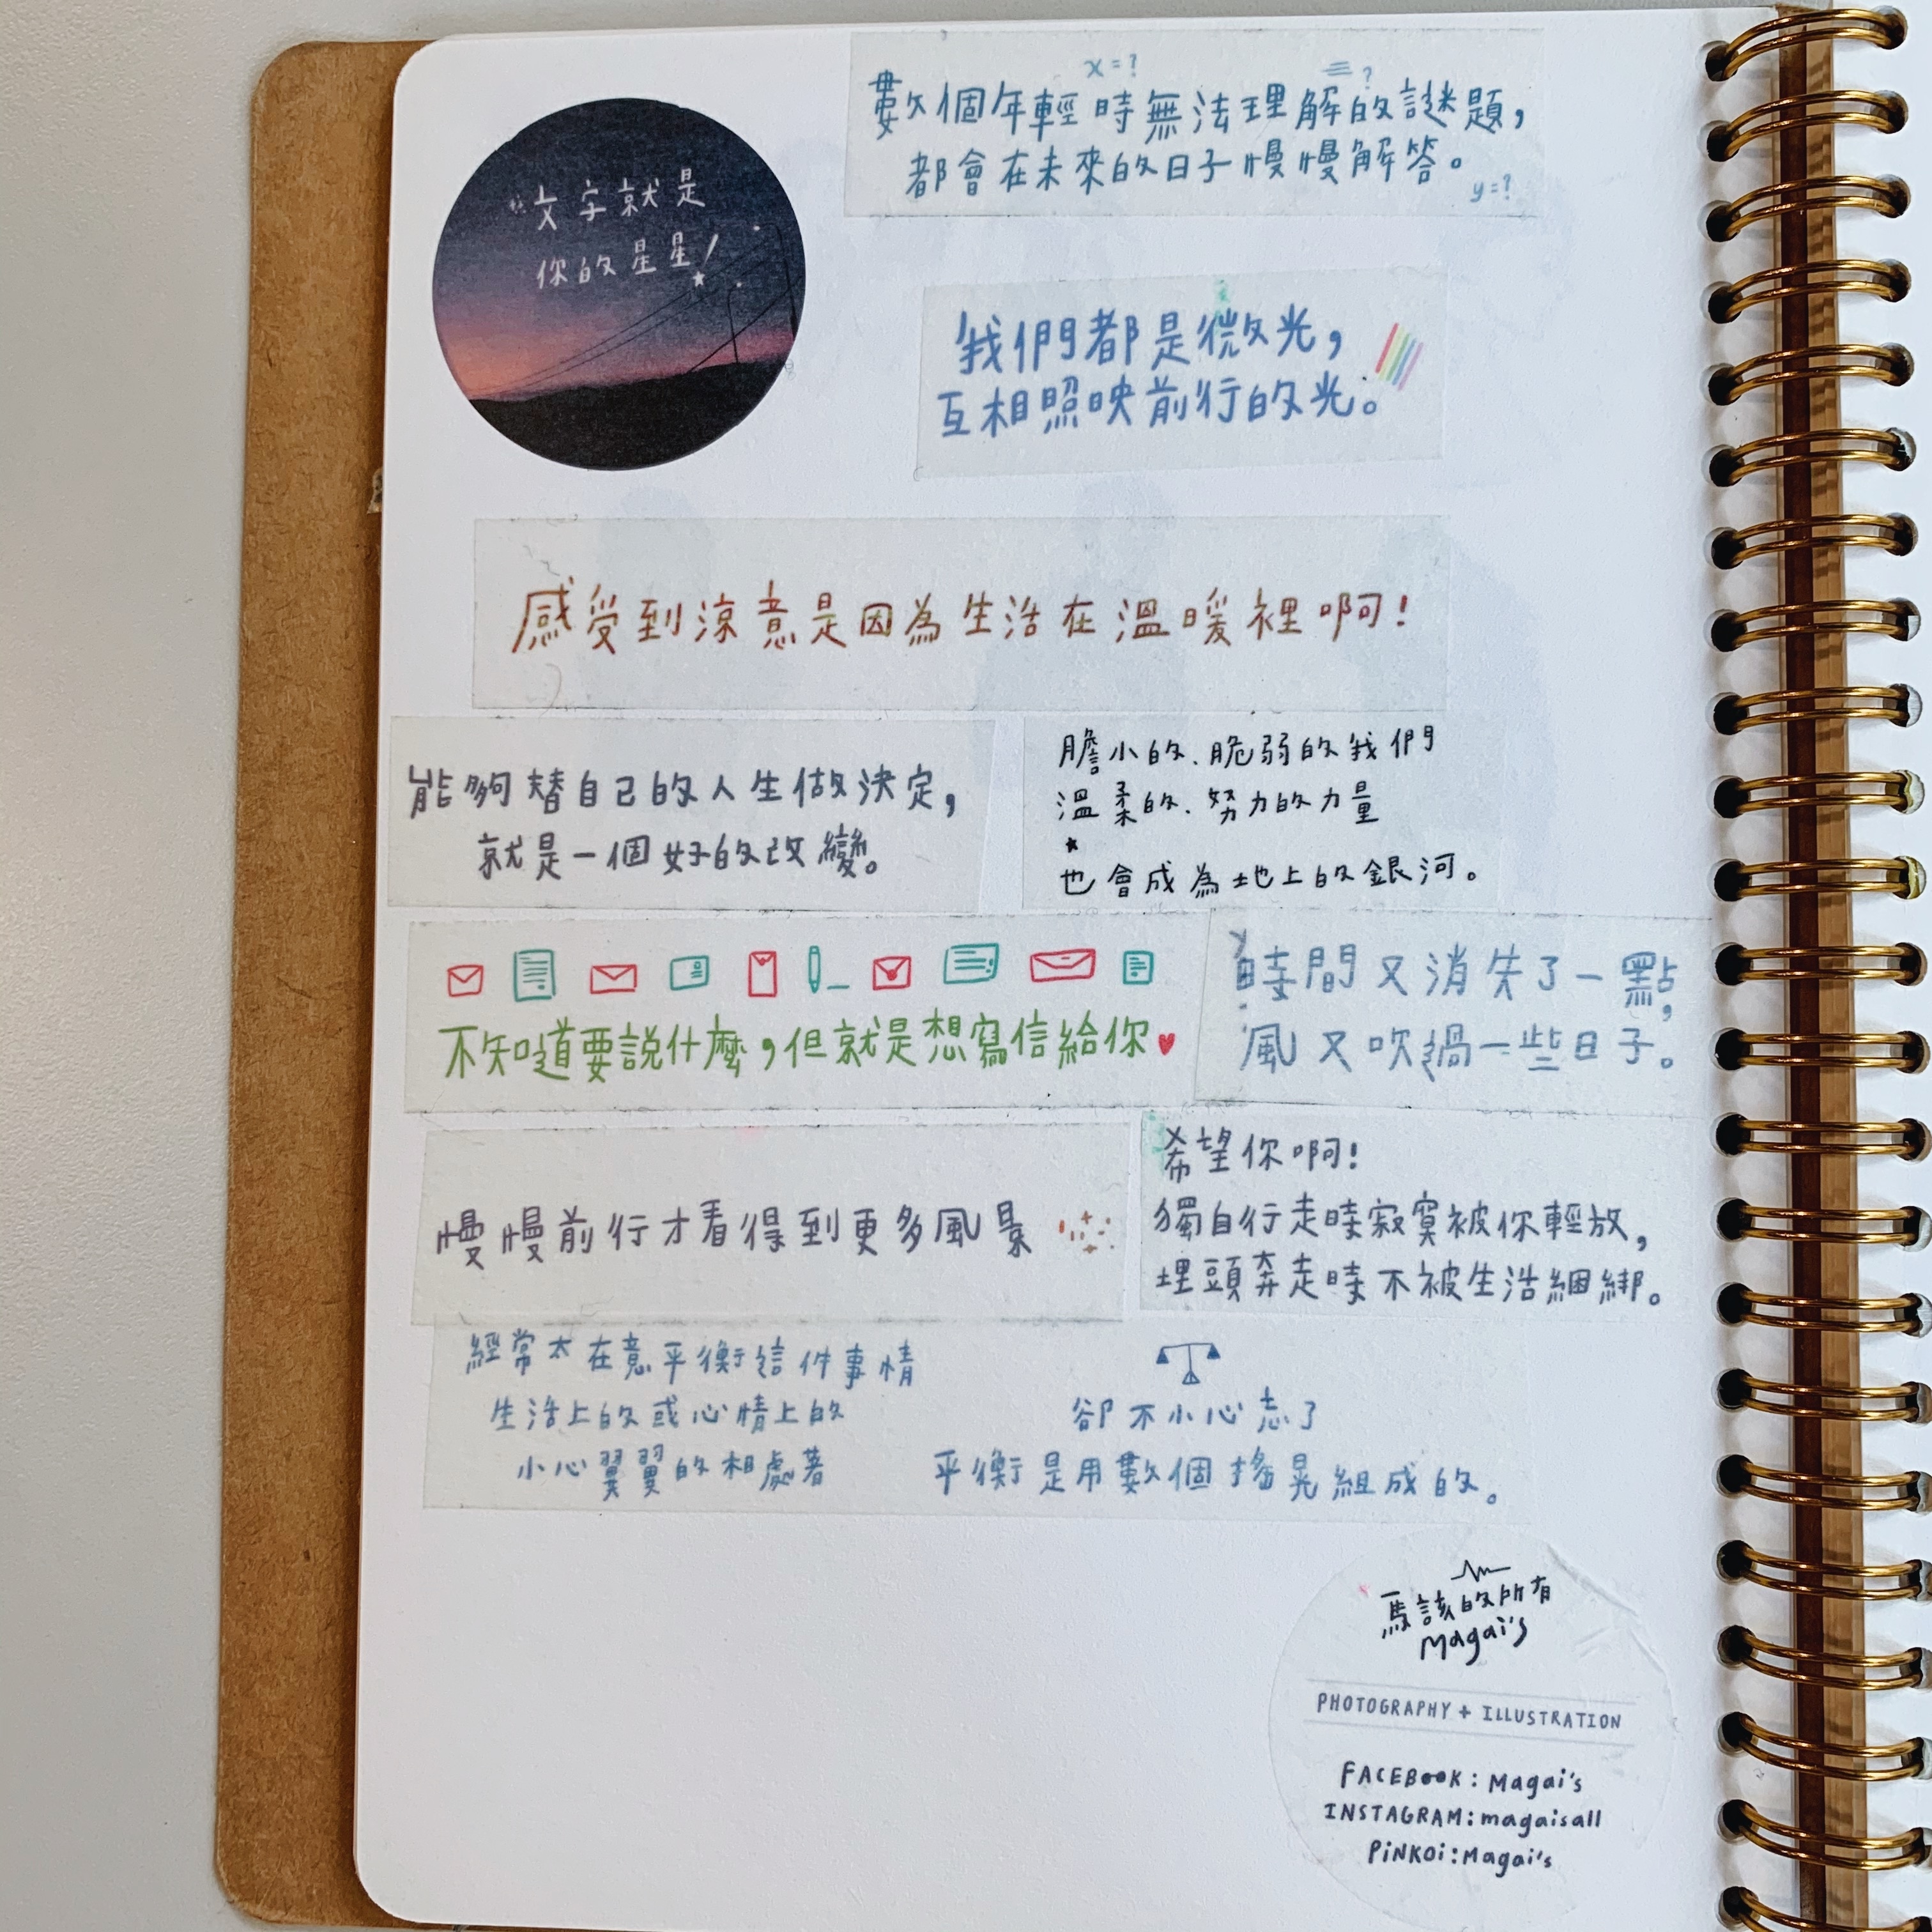 “文字就是
你的星星！
x=?
=?
數個年輕時無法理解的謎題，
都會在未來的日子慢慢解答。
y=?
我們都是微光，
互相照映前行的光。
感受到涼意是因為生活在溫暖裡啊！
能夠替自己的人生做決定，
就是一個好的改變。
膽小的、脆弱的我們
溫柔的、努力的力量
也會成為地上的銀河。
不知道要說什麼，但就是想寫信給你
時間又消失了一點，
風又吹過一些日子。
慢慢前行才看得到更多風景
希望你啊！
獨自行走時寂寞被你輕放，
埋頭奔走時不被生活綑綁。
經常太在意平衡這件事情
生活上的或心情上的
小心翼翼的相處著
卻不小心忘了
平衡是用數個搖晃組成的。
馬該的所有
Magai's
PHOTOGRAPHY + ILLUSTRATION
FACEBOOK: Magai's
INSTAGRAM: magaisall
PiNKOi: Magai's